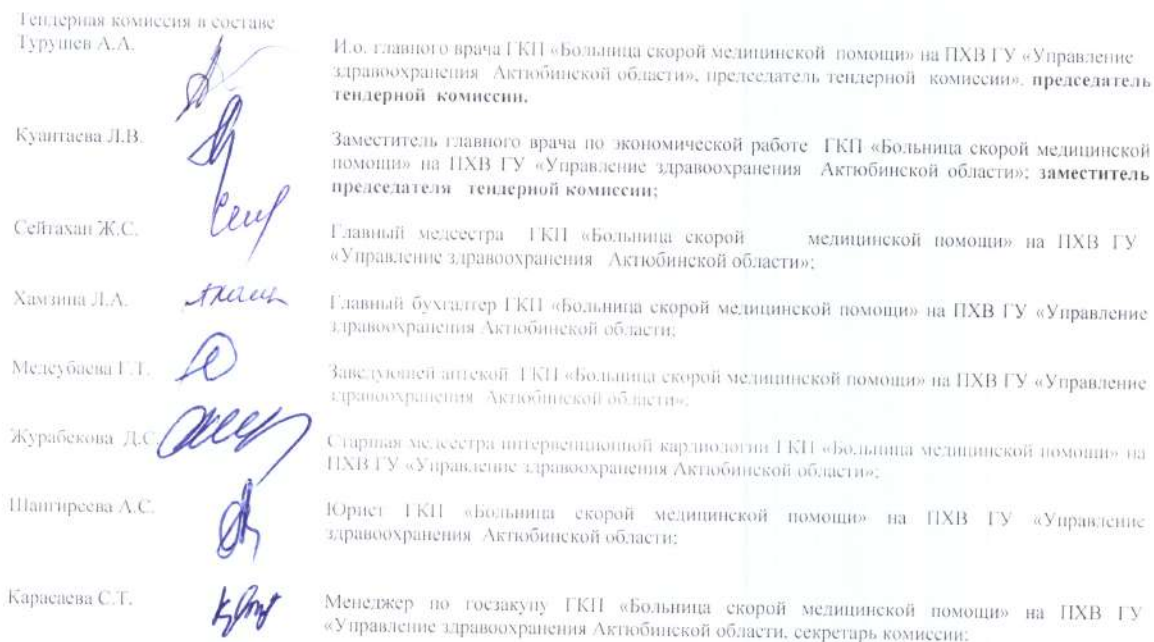 Тендерная комиссия в составе
Турушев А.А.
И.о. главного врача ГКП «Больница скорой медицинской помощи» на ПХВ ГУ «Управление
здравоохранения Актюбинской области», председатель тендерной комиссии». председатель
тендерной комиссии.
Куантаева Л.В.
Заместитель главного врача по экономической работе ГКП «Больница скорой медицинской
помощи» на ПХВ ГУ «Управление здравоохранения Актюбинской области»; заместитель
председателя тендерной комиссии;
Сейтахан Ж.С.
Главный медсестра ГКП «Больница скорой медицинской помощи» на ПХВ ГУ
«Управление здравоохранения Актюбинской области»;
Хамзина Л.А.
Главный бухгалтер ГКП «Больница скорой медицинской помощи» на ПХВ ГУ «Управление
здравоохранения Актюбинской области;
Медеубаева Г.Т.
Заведующей аптекой ГКП «Больница скорой медицинской помощи» на ПХВ ГУ «Управление
здравоохранения Актюбинской области»;
Журабекова Д.С
Старшая медсестра интервенционной кардиологии ГКП «Больница медицинской помощи» на
ПХВ ГУ «Управление здравоохранения Актюбинской области»;
Шангиреева А.С.
Юрист ГКП «Больница скорой медицинской помощи» на ПХВ ГУ «Управление
здравоохранения Актюбинской области;
Карасаева С.Т.
Менеджер по госзакупу ГКП «Больница скорой медицинской помощи» на ПХВ ГУ
«Управление здравоохранения Актюбинской области, секретарь комиссии;